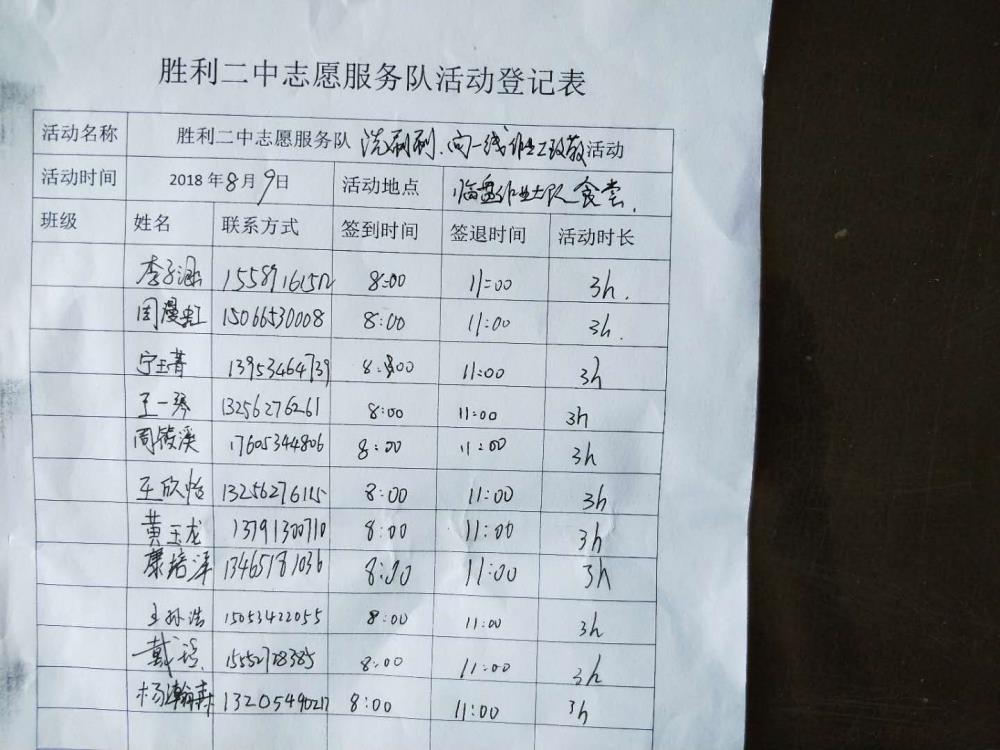 胜利二中志愿服务队活动登记表
活动名称 胜利二中志愿服务队 洗刷刷、向一线职工致敬活动
活动时间 2018年8月9日 活动地点 临盘作业大队食堂.
班级 姓名 联系方式 签到时间 签退时间 活动时长
李子涵 8:00 11:00 3h.
周漫虹 15066530008 8:00 11:00 3h.
宁玉菁 13953464739 8:00 11:00 3h
王一琴 13256276261 8:00 11:00 3h
周筱溪 17605344806 8:00 11:00 3h
王欣怡 13256276115 8:00 11:00 3h
黄玉龙 13791300710 8:00 11:00 3h
康培泽 13465181036 8:00 11:00 3h
王孙浩 15053422055 8:00 11:00 3h
戴 8:00 11:00 3h
杨瀚森 13205490217 8:00 11:00 3h